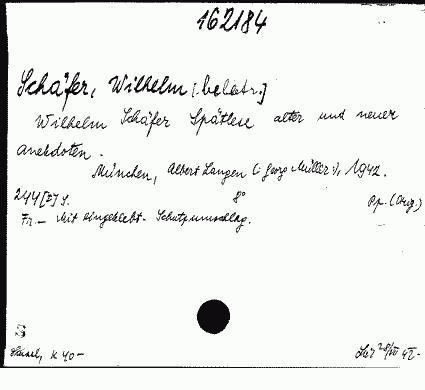 162184
Schäfer, Wilhelm [belletr.]
Wilhelm Schäfer Spätlese alter und neuer
Anekdoten.
München, Albert Langen (: Georg Müller :), 1942.
244 [2] S. 8° Pp. (Orig.)
Fr. – Mit eingeklebt. Schutzumschlag.
S
K 40–